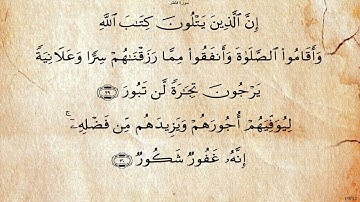 سورة فاطر
إِنَّ ٱلَّذِينَ يَتْلُونَ كِتَـٰبَ ٱللَّهِ
وَأَقَامُوا۟ ٱلصَّلَوٰةَ وَأَنفَقُوا۟ مِمَّا رَزَقْنَـٰهُمْ سِرًّا وَعَلَانِيَةً
يَرْجُونَ تِجَـٰرَةً لَّن تَبُورَ ٢٩
لِيُوَفِّيَهُمْ أُجُورَهُمْ وَيَزِيدَهُم مِّن فَضْلِهِۦٓ ۚ
إِنَّهُۥ غَفُورٌ شَكُورٌ ٣٠